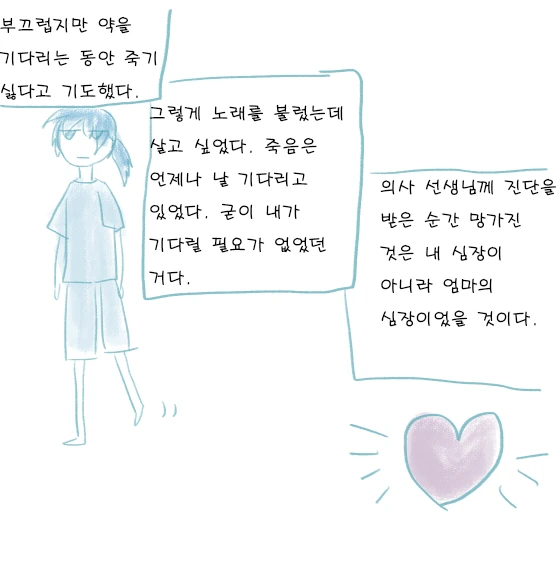 부끄럽지만 약을
기다리는 동안 죽기
싫다고 기도했다.
그렇게 노래를 불렀는데
살고 싶었다. 죽음은
언제나 날 기다리고
있었다. 굳이 내가
기다릴 필요가 없었던
거다.
의사 선생님께 진단을
받은 순간 망가진
것은 내 심장이
아니라 엄마의
심장이었을 것이다.